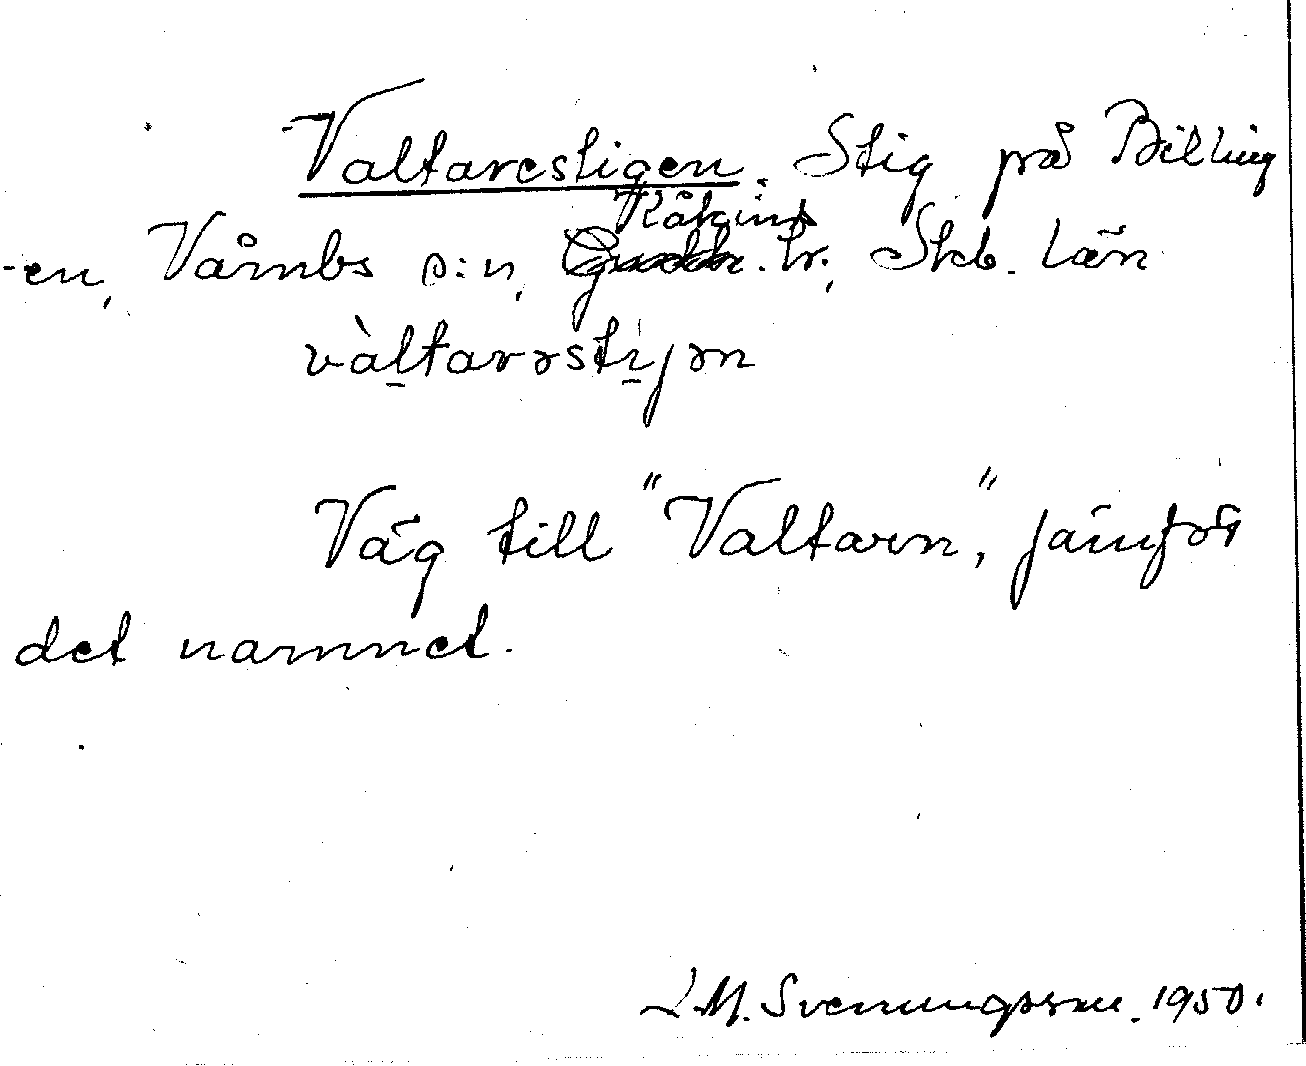 Valtarestigen. Stig på Billing
-en, Våmbs s:n, Kåkinds hr, Skb. län
vàltarəstıɟən
Väg till "Valtarn", jämför
det namnet.
L.M. Svenungsson. 1950.